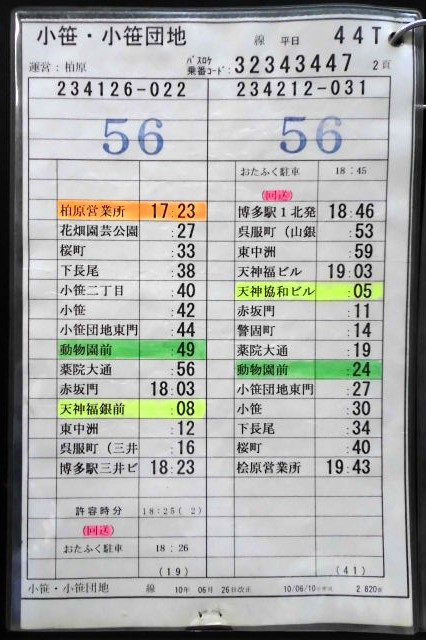 小笹・小笹団地 線 平日 44T
運営:柏原 バスロケ乗番コード: 32343447 2頁
234126-022 234212-031
56 56
おたふく駐車 18:45
(回送)
柏原営業所 17:23 博多駅1北発 18:46
花畑園芸公園 :27 呉服町(山銀 :53
桜町 :33 東中洲 :59
下長尾 :38 天神福ビル 19:03
小笹二丁目 :40 天神協和ビル :05
小笹 :42 赤坂門 :11
小笹団地東門 :44 警固町 :14
動物園前 :49 薬院大通 :19
薬院大通 :56 動物園前 :24
赤坂門 18:03 小笹団地東門 :27
天神福銀前 :08 小笹 :30
東中洲 :12 下長尾 :34
呉服町(三井 :16 桜町 :40
博多駅三井ビ 18:23 桧原営業所 19:43
許容時分 18:25( 2)
(回送)
おたふく駐車 18:26
(19) (41)
小笹・小笹団地 線 10年 06月 26日改正 10/06/10 2.820